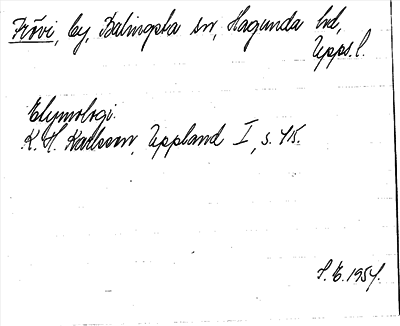 Frövi, by, Balingsta sn, Hagunda hd,
Upps. l.
Etymologi.
K. H. Karlsson, Uppland I, s. 415.
S. E. 1954.